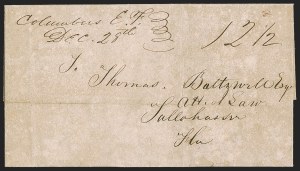 Columbus E. F.
Dec. 28th
12 1/2
To Thomas. Baltzell Esqr
Att. at Law
Tallahassee
Fla